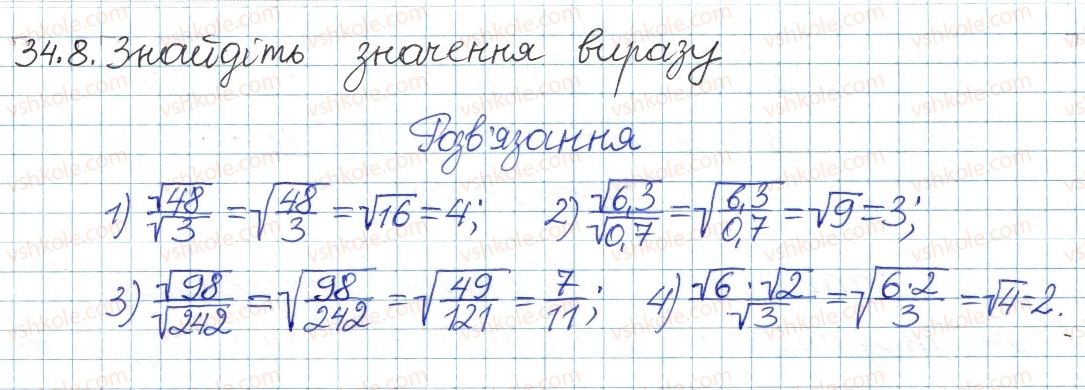 34.8. Знайдіть значення виразу
Розв'язання
1) √48/√3 = √(48/3) = √16 = 4; 2) √6,3/√0,7 = √(6,3/0,7) = √9 = 3;
3) √98/√242 = √(98/242) = √(49/121) = 7/11; 4) (√6·√2)/√3 = √((6·2)/3) = √4 = 2.